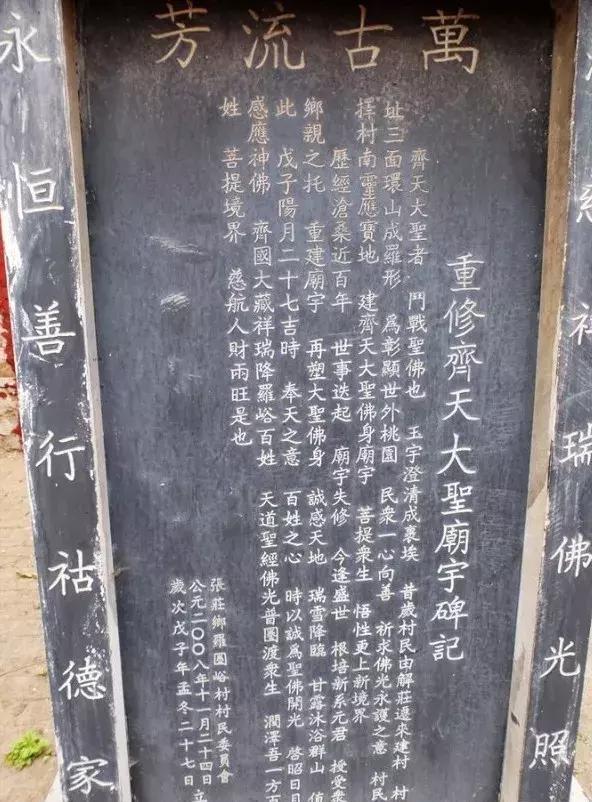 萬古流芳
瑞佛光照
重修齊天大聖廟宇碑記
齊天大聖者 鬥戰聖佛也 玉宇澄清成裹埃 昔歲村民由解莊遷來建村 村
址三面環山成羅形 爲彰顯世外桃園 民衆一心向善 祈求佛光永護之意 村民
擇村南靈應寶地 建齊天大聖佛身廟宇 菩提衆生 悟性更上新境界
歷經滄桑近百年 世事迭起 廟宇失修 今逢盛世 根培新系元君 授受衆
鄉親之托 重建廟宇 再塑大聖佛身 誠感天地 瑞雪降臨 甘露沐浴群山 值
此 戊子陽月二十七吉時 奉天之意 百姓之心 時以誠爲聖佛開光 啓昭日月
感應神佛 齊國大藏祥瑞降羅峪百姓 天道聖經佛光普圖渡衆生 潤澤吾一方百
姓 菩提境界 慈航人財雨旺是也
張莊鄉羅圈峪村村民委員會
公元二〇〇八年十一月二十四日
歲次戊子年孟冬二十七日 立
永恒善行祜德家